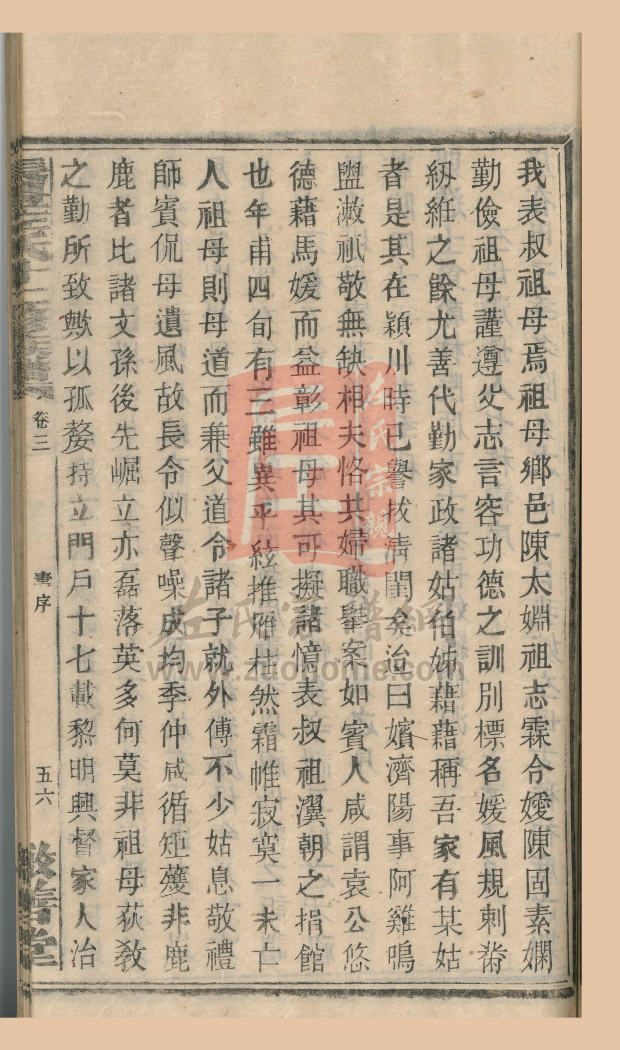 我表叔祖母焉祖母鄉邑陳太婣祖志霖令嬡陳固素嫻
勤儉祖母謹遵父志言容功德之訓別標名媛風規刺黹
紉絍之餘尤善代勤家政諸姑伯姊藉藉稱吾家有某姑
者是其在潁川時已譽拔淸閨矣治曰嬪濟陽事阿雞鳴
盥漱祇敬無缺相夫恪共婦職舉案如賓人咸謂袁公悠
德藉馬媛而益彰祖母其可擬諸憶表叔祖瀷朝之捐館
也年甫四旬有三雖異平絃推雁柱然霜帷寂寞一未亡
人祖母則母道而兼父道令諸子就外傅不少姑息敬禮
師賓侃母遺風故長令似聲噪成均季仲咸循矩矱非鹿
鹿者比諸文孫後先崛立亦磊落英多何莫非祖母荻教
之勤所致歟以孤嫠持立門戶十七載黎明興督家人治
卷三
壽序
五六
敬善堂
左氏宗親
左氏家譜網
www.zuohome.com